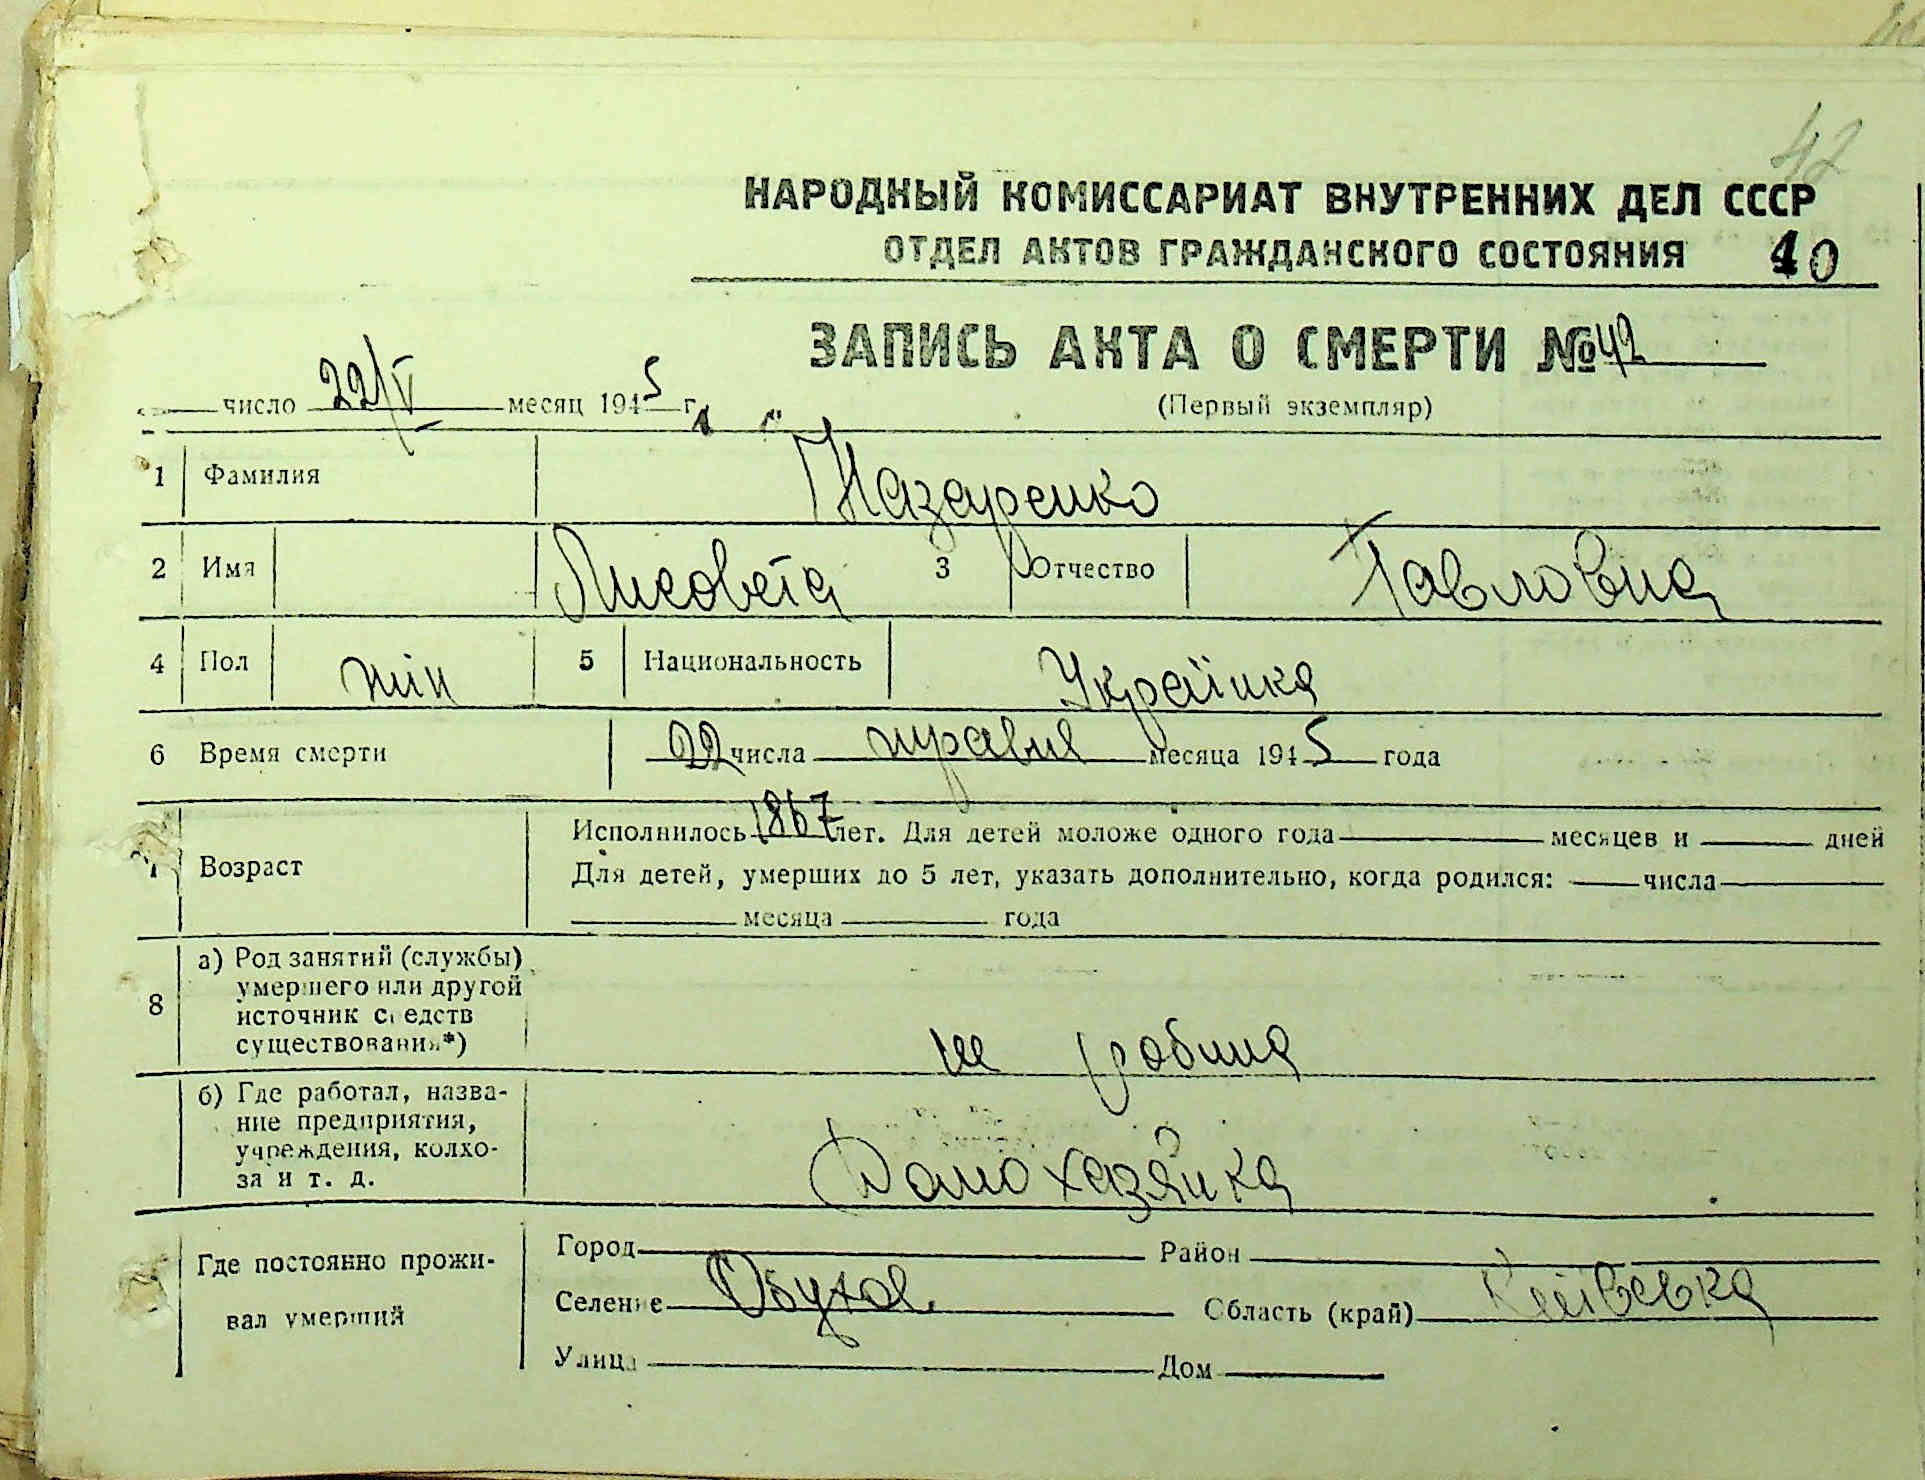 42
НАРОДНЫЙ КОМИССАРИАТ ВНУТРЕННИХ ДЕЛ СССР
ОТДЕЛ АКТОВ ГРАЖДАНСКОГО СОСТОЯНИЯ 40
ЗАПИСЬ АКТА О СМЕРТИ № 42
число 22/V месяц 1945 г.
(Первый экземпляр)
1 Фамилия Назаренко
2 Имя Лисовета 3 Отчество Павловна
4 Пол жін 5 Национальность Українка
6 Время смерти 22 числа травня месяца 1945 года
7 Возраст Исполнилось 1867 лет. Для детей моложе одного года месяцев и дней
Для детей, умерших до 5 лет, указать дополнительно, когда родился: числа
месяца года
8 а) Род занятий (службы)
умершего или другой
источник средств
существования*)
не робила
б) Где работал, назва-
ние предприятия,
учреждения, колхо-
за и т. д.
Домохазяйка
Где постоянно прожи-
вал умерший
Город Район
Селение Обухов Область (край) Київська
Улица Дом